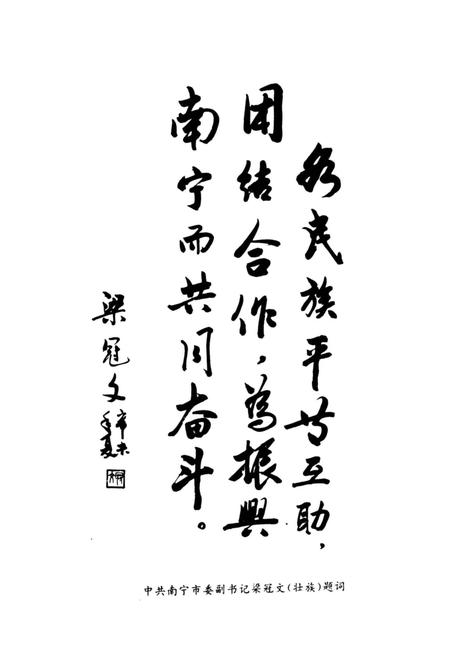 各民族平等互助,
团结合作,为振興
南宁而共同奋斗。
梁冠文
辛未
年夏
中共南宁市委副书记梁冠文(壮族)题词